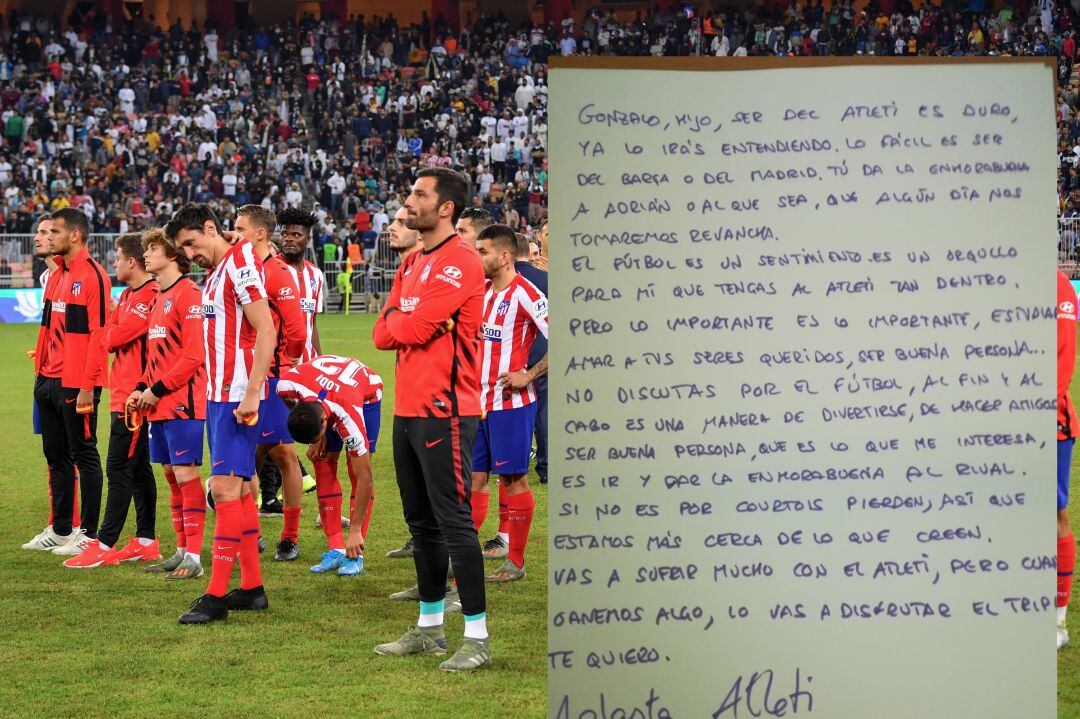 GONZALO, HIJO, SER DEL ATLETI ES DURO,
YA LO IRÁS ENTENDIENDO. LO FÁCIL ES SER
DEL BARÇA O DEL MADRID. TÚ DA LA ENHORABUENA
A ADRIÁN O AL QUE SEA, QUE ALGÚN DÍA NOS
TOMAREMOS REVANCHA.
EL FÚTBOL ES UN SENTIMIENTO. ES UN ORGULLO
PARA MÍ QUE TENGAS AL ATLETI TAN DENTRO.
PERO LO IMPORTANTE ES LO IMPORTANTE, ESTUDIAR
AMAR A TUS SERES QUERIDOS, SER BUENA PERSONA...
NO DISCUTAS POR EL FÚTBOL, AL FIN Y AL
CABO ES UNA MANERA DE DIVERTIRSE, DE HACER AMIGOS
SER BUENA PERSONA, QUE ES LO QUE ME INTERESA,
ES IR Y DAR LA ENHORABUENA AL RIVAL.
SI NO ES POR COURTOIS PIERDEN, ASÍ QUE
ESTAMOS MÁS CERCA DE LO QUE CREEN.
VAS A SUFRIR MUCHO CON EL ATLETI, PERO CUA
GANEMOS ALGO, LO VAS A DISFRUTAR EL TRIP
TE QUIERO.
Aplasta Atleti
LODI
HYUNDAI
HYUNDAI
500